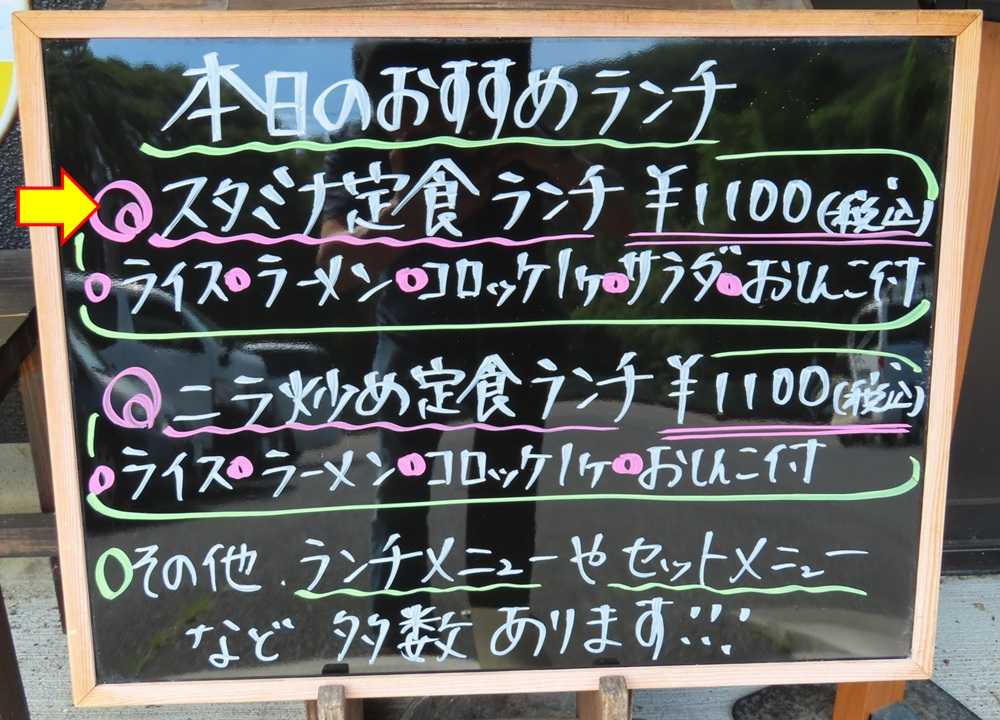 本日のおすすめランチ
スタミナ定食ランチ ¥1100(税込)
ライス・ラーメン・コロッケ1ヶ・サラダ・おしんこ付
ニラ炒め定食ランチ ¥1100(税込)
ライス・ラーメン・コロッケ1ヶ・おしんこ付
その他.ランチメニューやセットメニュー
など 多数あります!!!